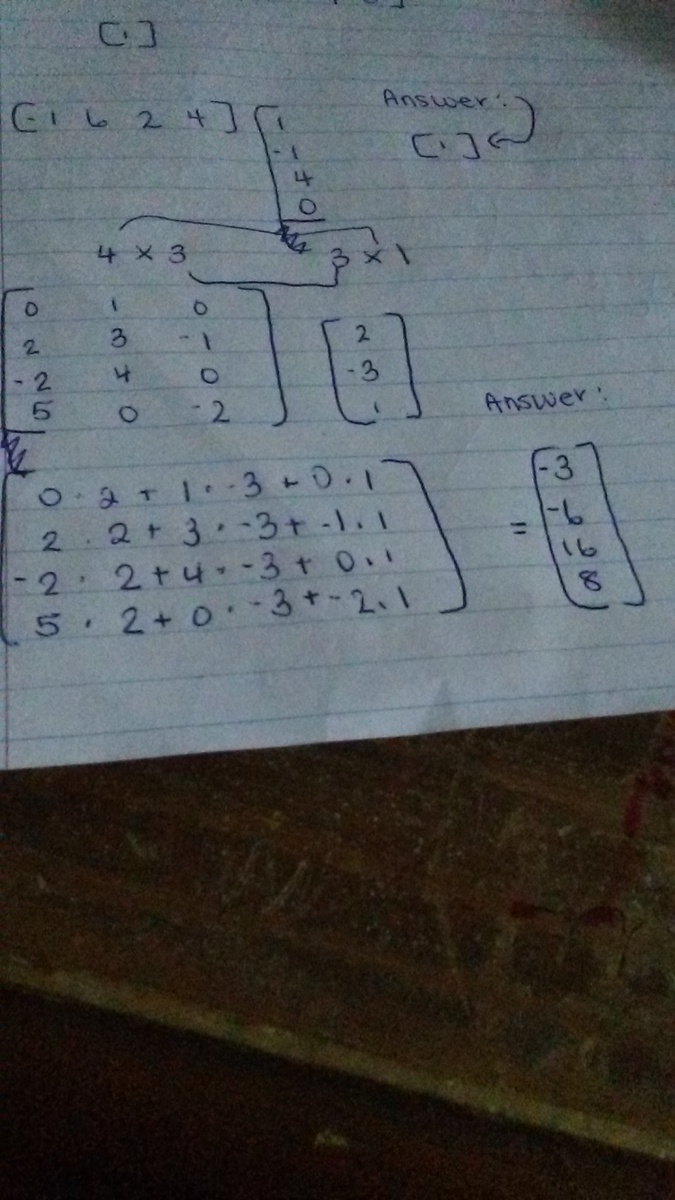 [1]
[-1 6 2 4] [1
-1
4
0
Answer:
[1]
4 x 3 3 x 1
0 1 0
2 3 -1
-2 4 0
5 0 -2
2
-3
1
Answer:
0 · 2 + 1 · -3 + 0 · 1
2 · 2 + 3 · -3 + -1 · 1
-2 · 2 + 4 · -3 + 0 · 1
5 · 2 + 0 · -3 + -2 · 1
=
-3
-6
16
8